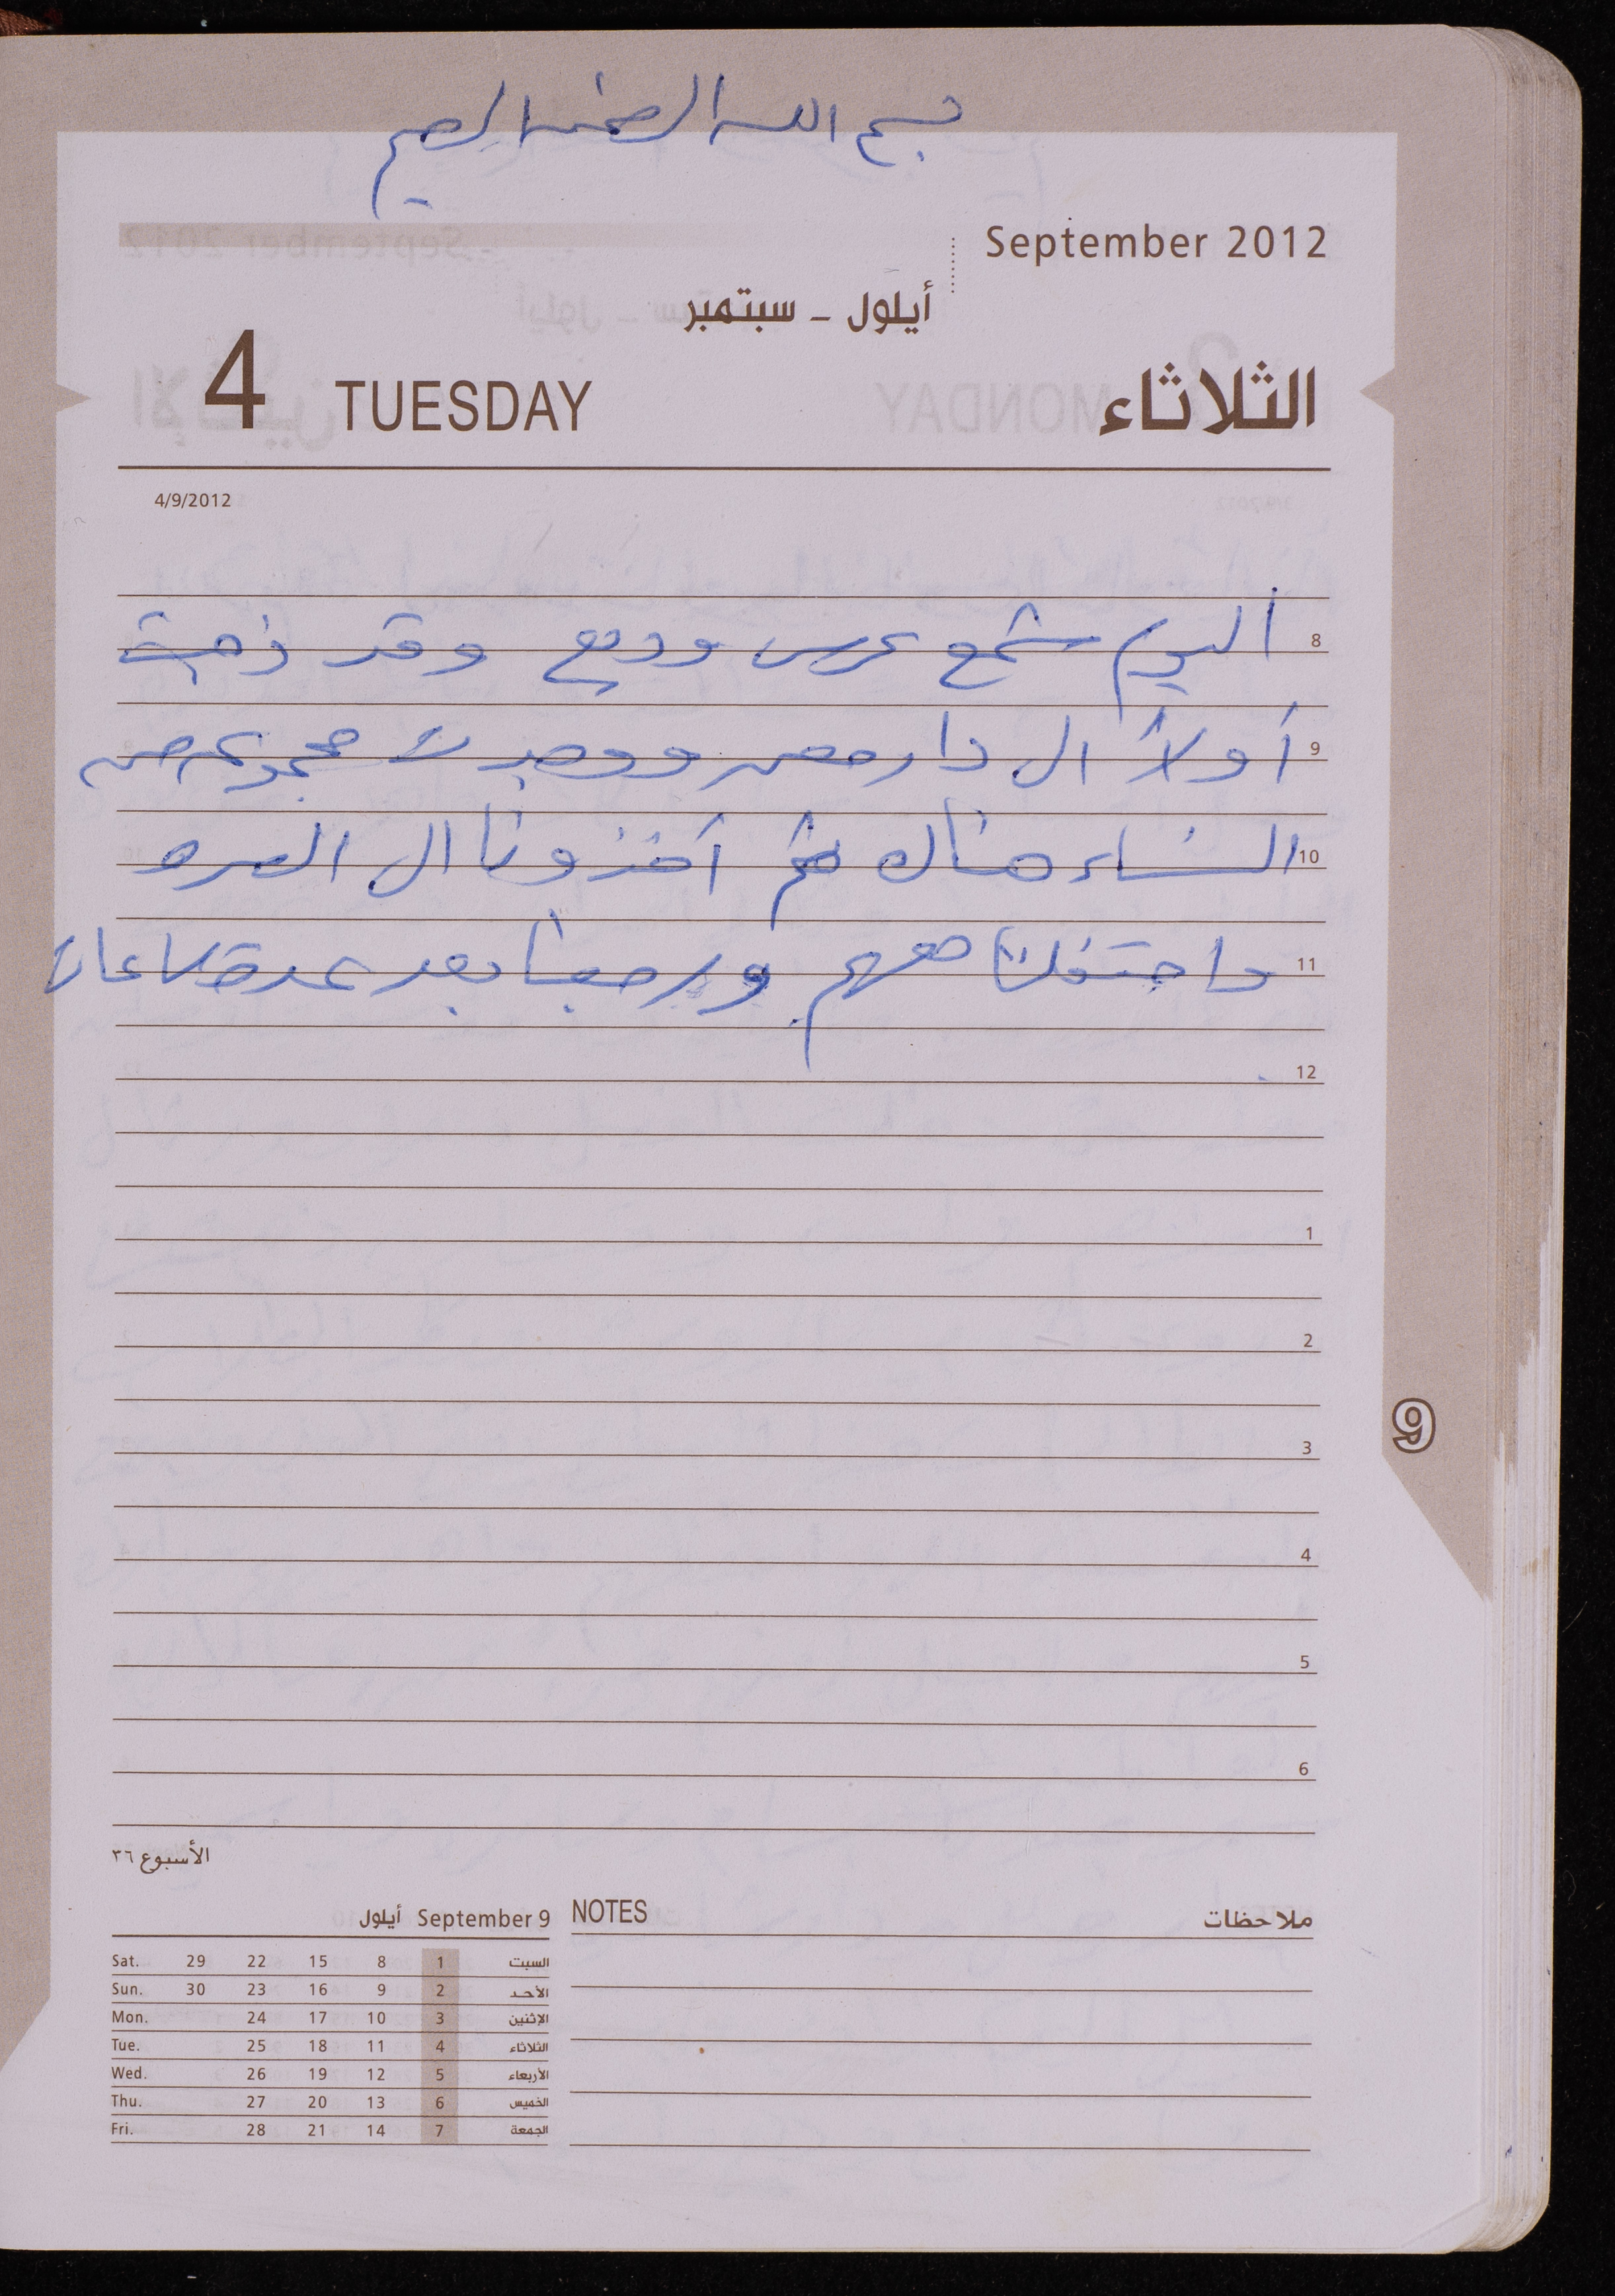 بسم الله الرحمن الرحيم
September 2012
أيلول - سبتمبر
4 TUESDAY الثلاثاء
4/9/2012
8 اليوم شمع عرس وديع وقد ذهبت
9 أولاً الى دار معن ووجدت مجموعه من
10 النساء هناك ثم أخذونا الى
11 واحتفلنا معهم ورجعنا بعد عدة ساعات
12 .
1
2
3
4
5
6
9
الأسبوع ٣٦
أيلول September 9
Sat. 29 22 15 8 1 السبت
Sun. 30 23 16 9 2 الأحد
Mon. 24 17 10 3 الإثنين
Tue. 25 18 11 4 الثلاثاء
Wed. 26 19 12 5 الأربعاء
Thu. 27 20 13 6 الخميس
Fri. 28 21 14 7 الجمعة
NOTES ملاحظات